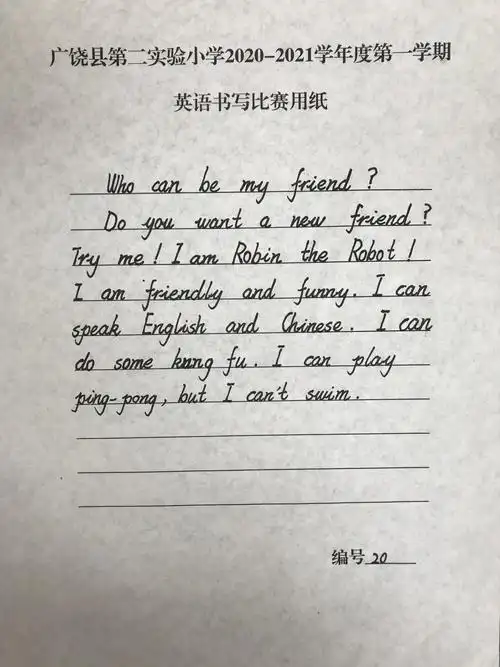 广饶县第二实验小学2020-2021学年度第一学期
英语书写比赛用纸
Who can be my friend ?
Do you want a new friend ?
Try me ! I am Robin the Robot !
I am friendly and funny. I can
speak English and Chinese. I can
do some kung fu. I can play
ping-pong, but I can't swim.
编号 20